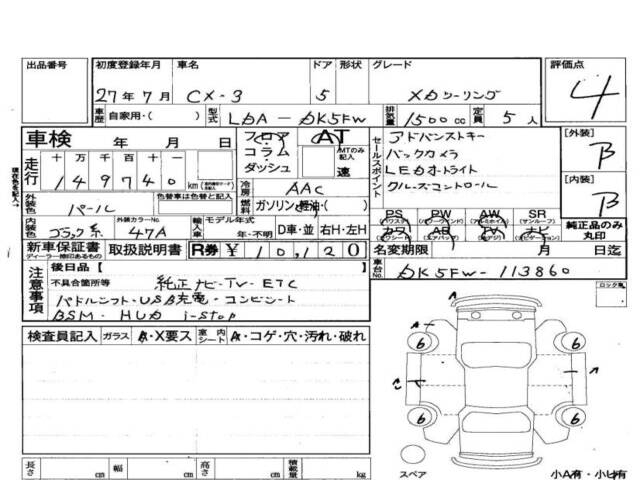 出品番号 初度登録年月 車名 ドア 形状 グレード 評価点
27年 7月 CX-3 5 XDツーリング 4
車歴 自家用・( ) 型式 LDA-DK5FW 排気量 1500cc 定員 5人
車検 年 月 日 フロア AT アドバンストキー [外装]
コラム MTのみ記入 セールスポイント バックカメラ B
走行 十万千百十 ダッシュ 速 LEDオートライト [内装]
149740 km 冷房 AAC クルーズコントロール B
外装色 パール 燃料 ガソリン・軽油・( ) PS PW AW SR
内装色 ブラック系 外装カラーNo. 47A 輸入車 モデル年式 年・不明 D車・並 右H・左H カワ AB ナビ 純正品のみ丸印
新車保証書 取扱説明書 R券 ¥10,120 名変期限 月 日迄
ディーラー捺印あるもの
注意事項 後日品 [ ] 車台No. DK5FW-113860
不具合箇所等 純正ナビ・TV・ETC ロック鳥
パドルシフト・USB充電・コンビシート
BSM・HUD i-stop
検査員記入 ガラス A・X要ス 室内シート A・コゲ・穴・汚れ・破れ
A
6 6
A
6 6
スペア
長さ cm 幅 cm 高さ cm 積載量 kg 小A有・小U有